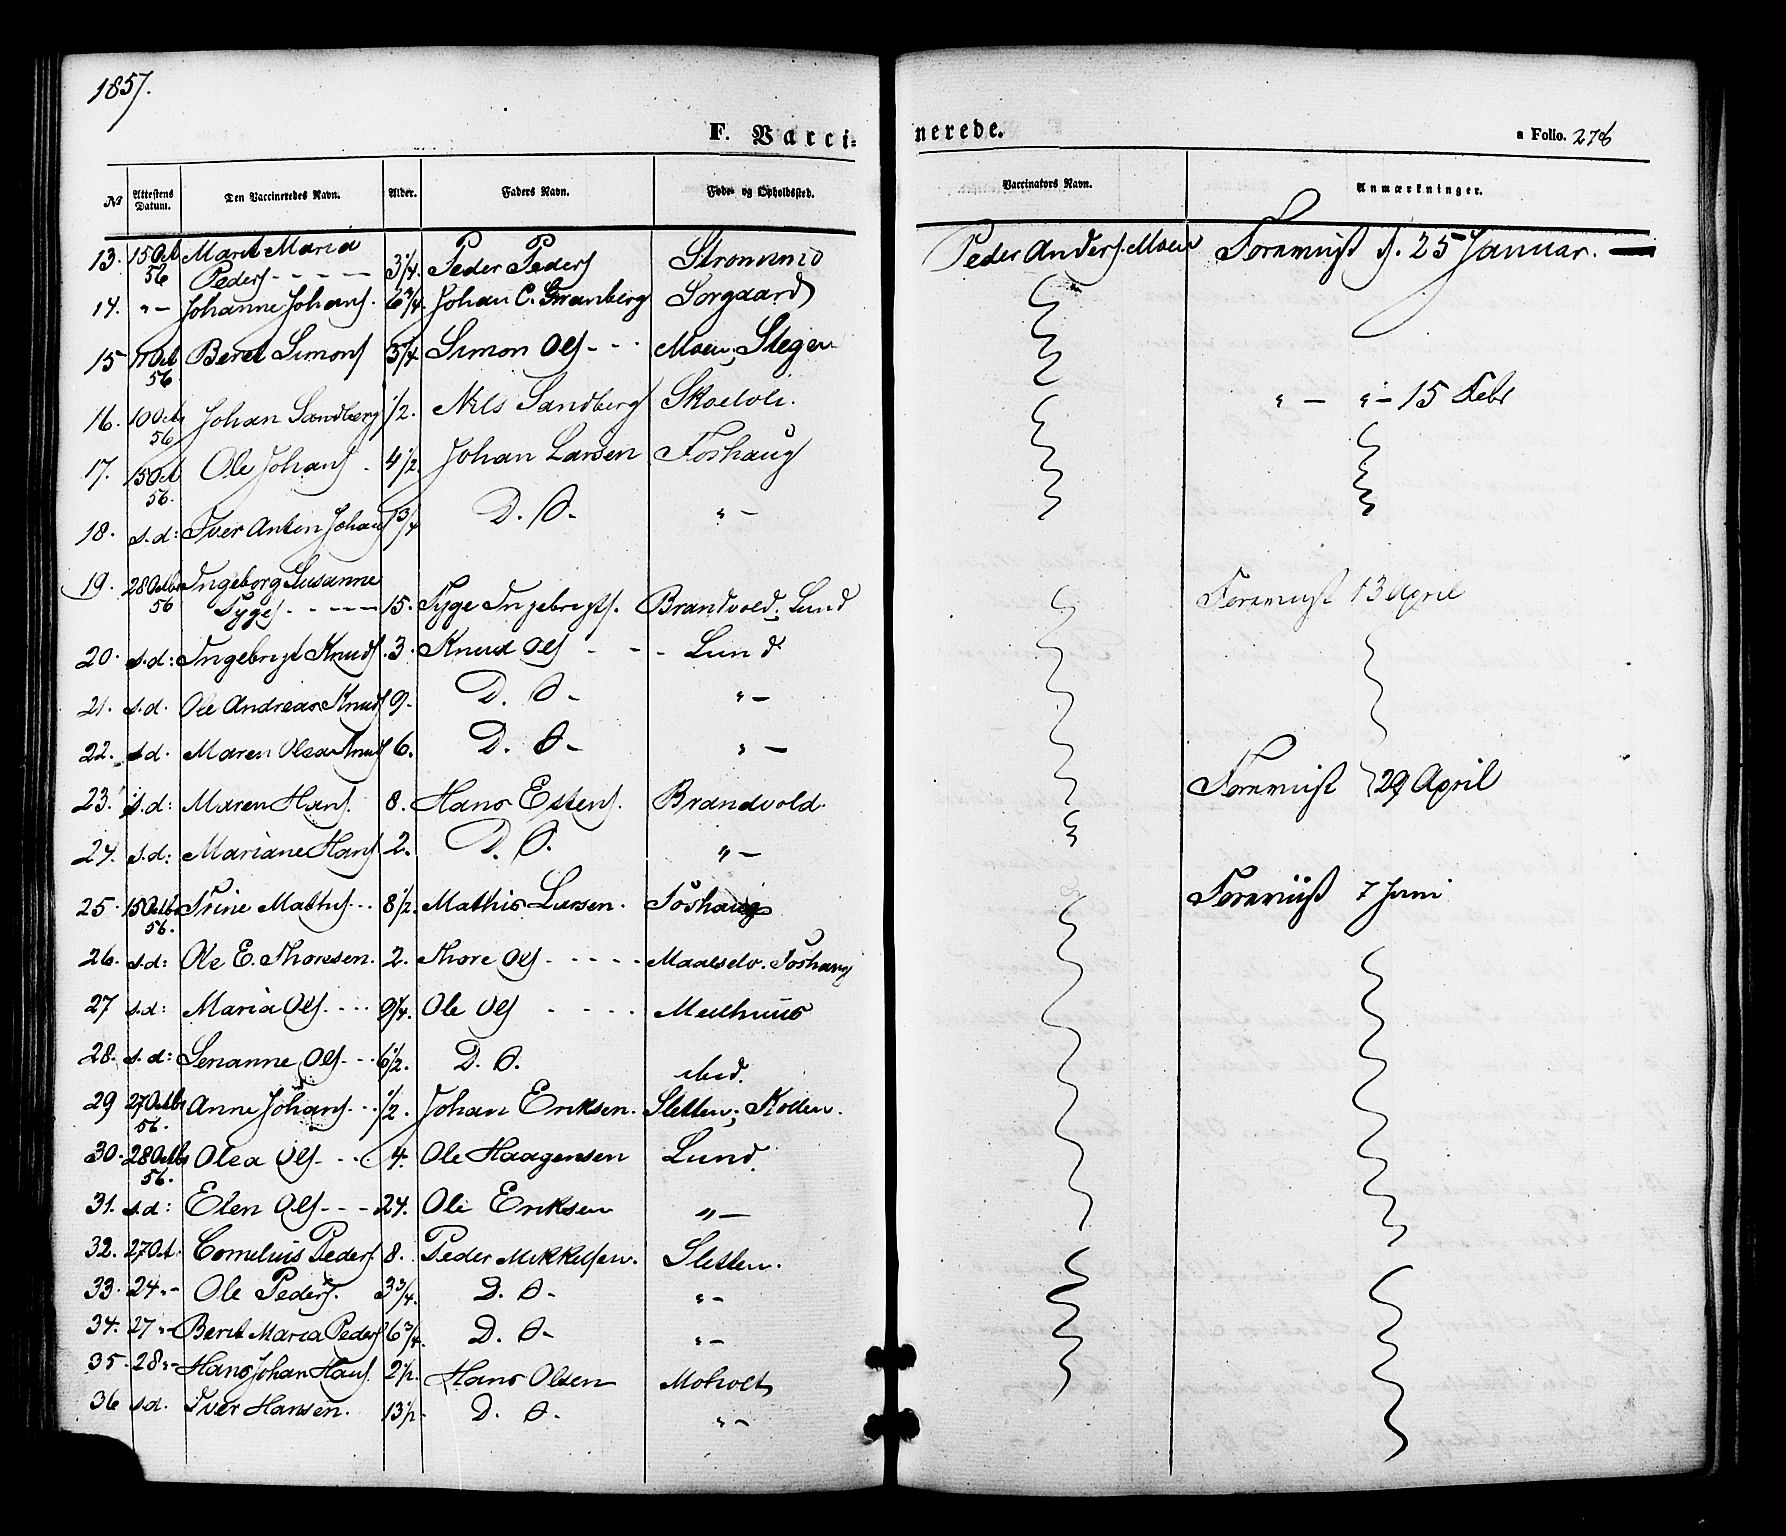 1857.
F. Vacci-
nerede.
a Folio. 276
№ Attestens Datum. Den Vaccineredes Navn. Alder. Faders Navn. Føde- og Opholdssted. Vaccinators Navn. Anmærkninger.
13. 15 Oct 56 Marit Maria Peders - - - - 3 1/4. Peder Peders Strømmid Peder Anders. Moen Foreviist d. 25 Januar. —
14. " — Johanne Johans. 6 3/4. Johan C. Granberg Sorgaard
15 11 Oct 56 Beret Simons 3 1/4 Simon Ols - - - Moen, Slegen
16. 10 Octb 56 Johan Sandberg 1/2. Nils Sandberg Skoelvli. " — " — 15 Febr
17. 15 Oct 56. Ole Johans - 4 1/2 Johan Larsen Foshaug
18. s.d: Iver Anton Johans 1 3/4 D. O. " —
19. 28 Octb 56 Ingeborg Susanne Tyges - - - - 15. Tyge Ingebrigts. Brandvold; Lund Foreviist 13 April
20. s.d: Ingebrigt Knuds. 3. Knud Ols - - - Lund
21. s.d. Ole Andreas Knuds 9. D. O. " —
22. s.d. Maren Olea Knuds 6. D. O. " —
23. s.d: Maren Hans. 8. Hans Estens. Brandvold. Foreviist 29 April
24. s.d: Mariane Hans 2. D. O. " —
25. 15 Octb 56. Trine Mathis - - 8 1/2. Mathis Larsen. Foshaug Foreviist 7 Juni
26. s.d: Ole E. Thoresen. 2. Thore Ols - - - - - Maalselv. Foshaug
27 s.d: Maria Ols - - - - 9 1/4. Ole Ols - - - - Meelhuus
28. s.d: Serianne Ols - - - 6 1/2. D. O. ibid.
29 27 Octb 56. Anne Johans. - - 1/2. Johan Eriksen. Sletten; Kollen.
30. 28 Octb 56. Olea Ols - - - 4. Ole Haagensen Lund.
31. s.d: Elen Ols - - - 24. Ole Eriksen " —
32. 27 Oct. Cornelius Peders. 8. Peder Mikkelsen. Sletten.
33. 24 " - Ole Peders. 3 3/4. D. O. " —
34. 27 " - Berit Maria Peders 6 3/4. D. O. " —
35. 28 " - Hans Johan Hans. 2 1/2. Hans Olsen Moholt
36 s.d. Iver Hansen. 13 1/2. D. O. " —